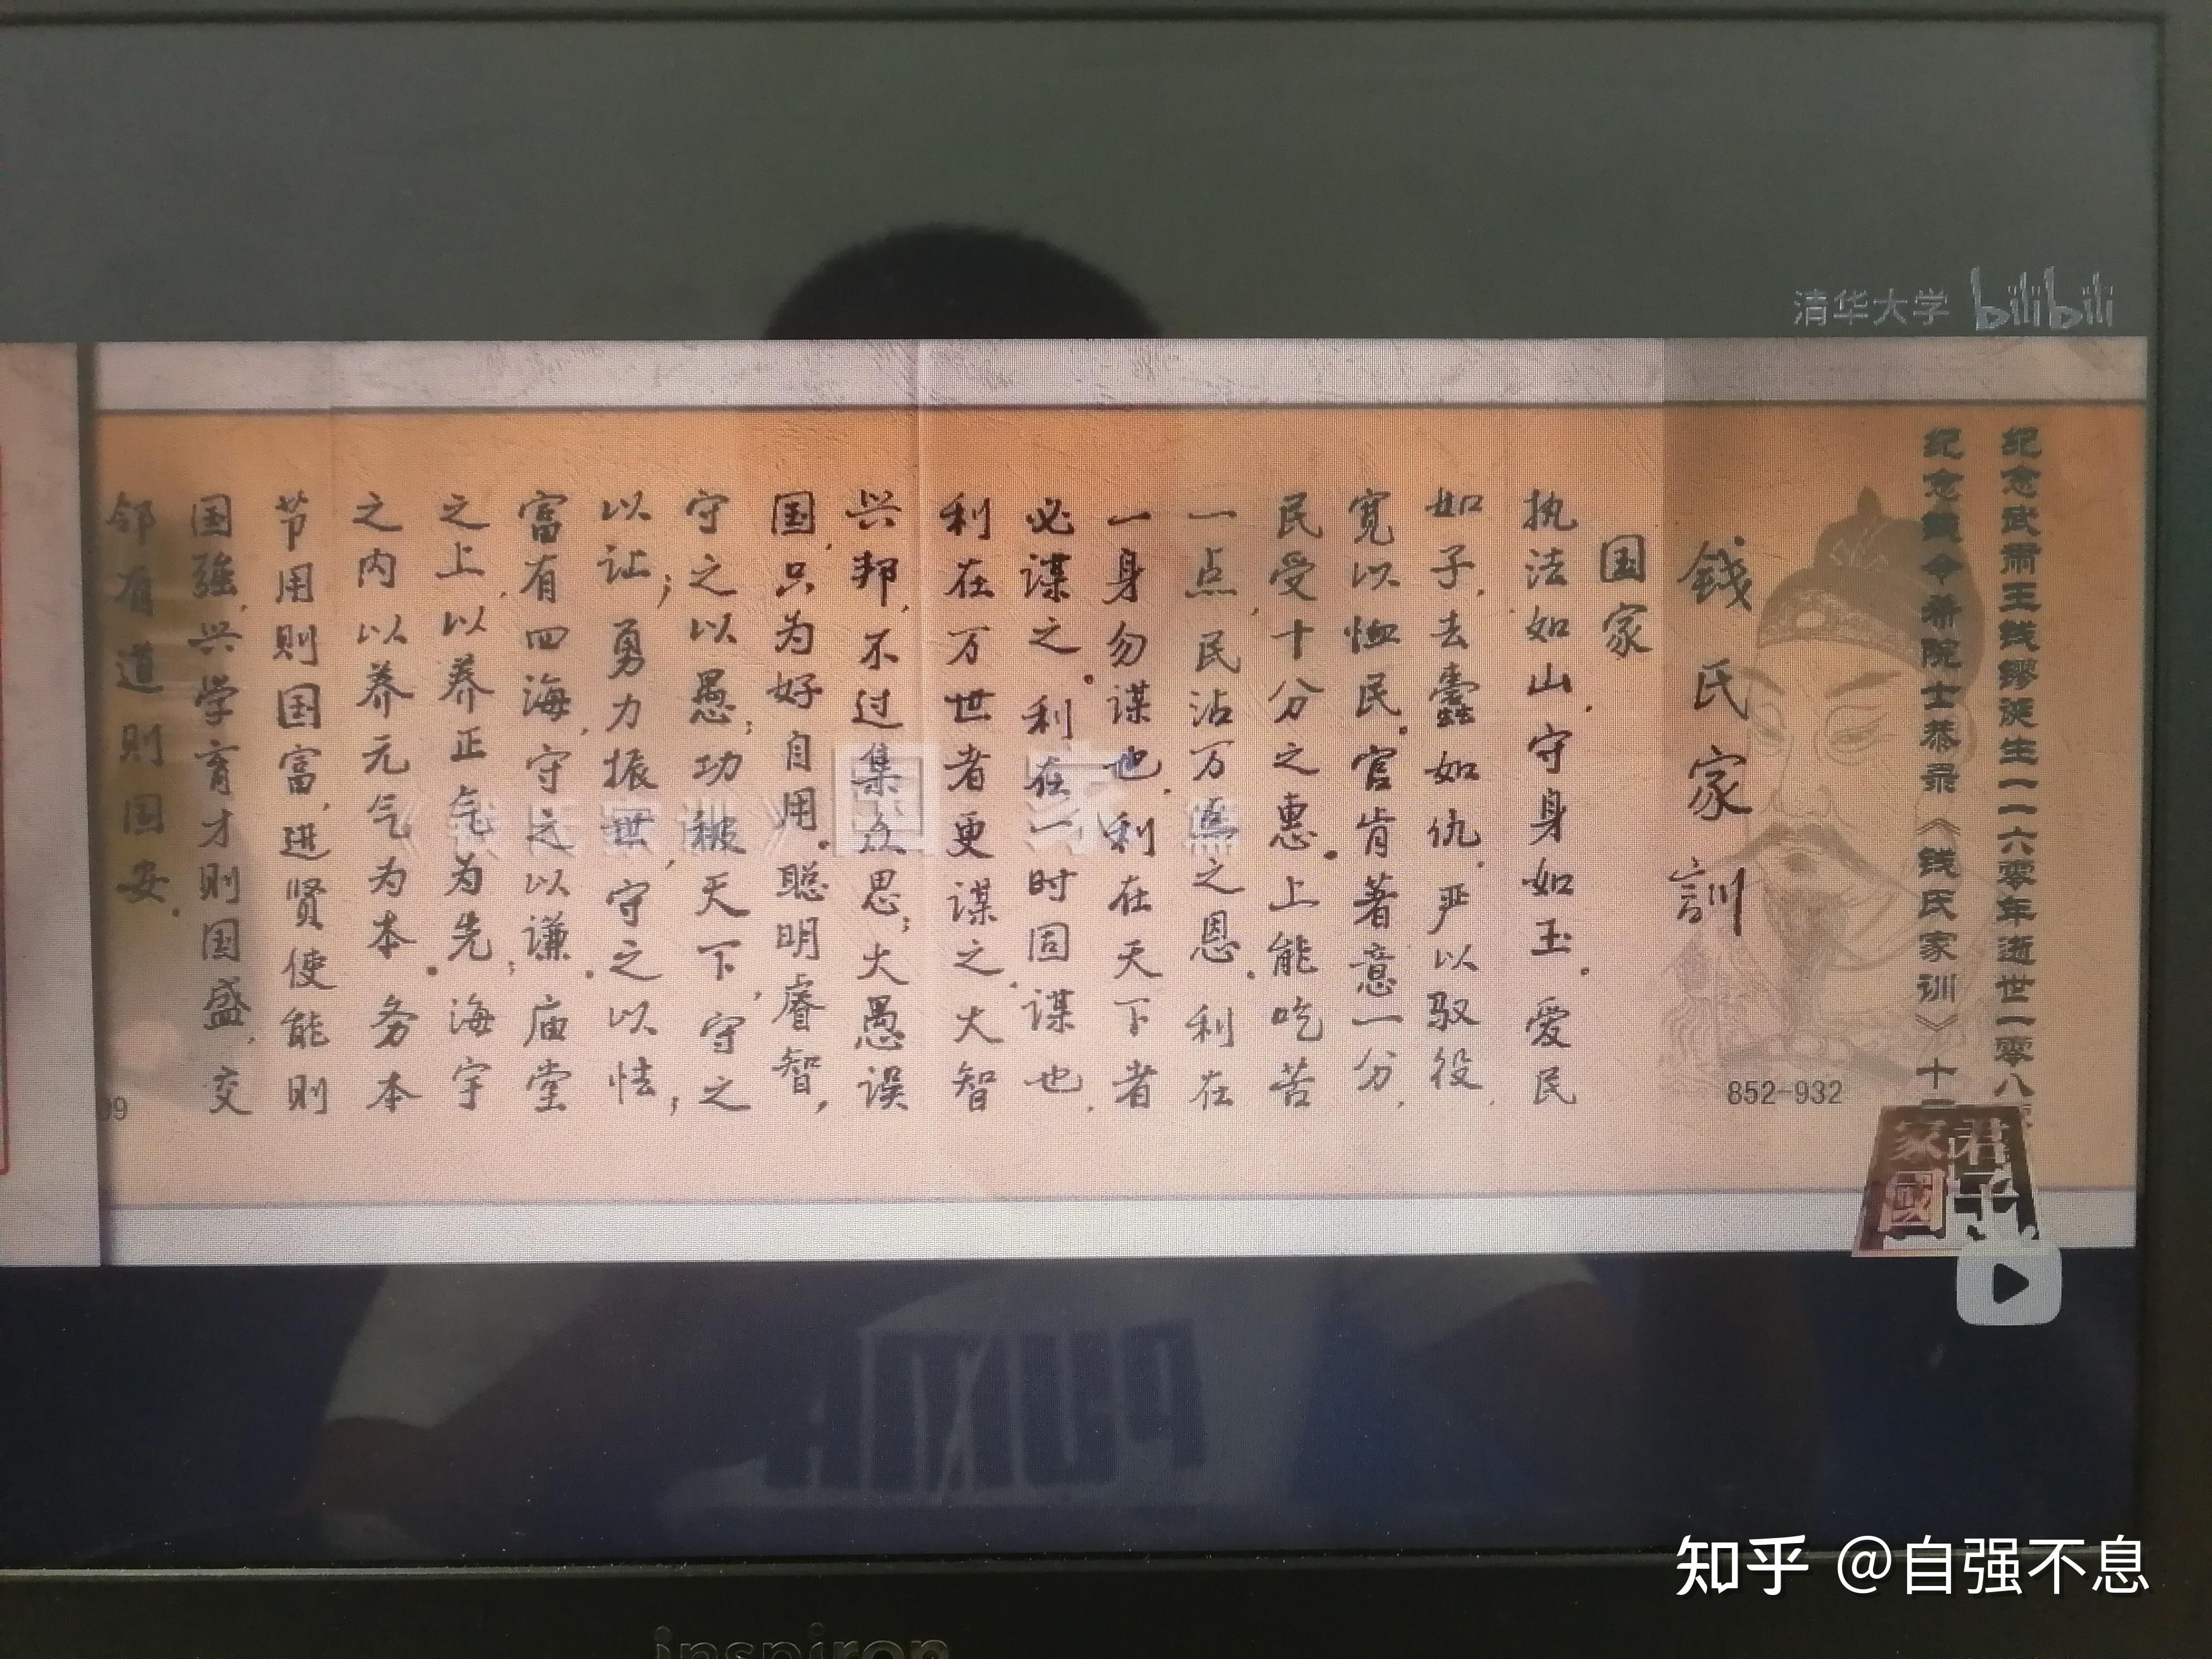 清华大学 bilibili
纪念武肃王钱镠诞生一一六零年逝世一零八
纪念钱令希院士恭录《钱氏家训》十
852-932
錢氏家訓
国家
执法如山,守身如玉。爱民
如子,去蠹如仇。严以驭役,
宽以恤民。官肯著意一分,
民受十分之惠。上能吃苦
一点,民沾万点之恩。利在
一身勿谋也,利在天下者
必谋之。利在一时固谋也,
利在万世者更谋之。大智
兴邦,不过集众思;大愚误
国,只为好自用。聪明睿智,
守之以愚;功被天下,守之
以让;勇力振世,守之以怯;
富有四海,守之以谦。庙堂
之上,以养正气为先;海宇
之内以养元气为本。务本
节用则国富,进贤使能则
国強,兴学育才则国盛,交
邻有道则国安。
99
《钱氏家训》国家篇
君子
家國
PUXIA
inspiron
知乎 @自强不息